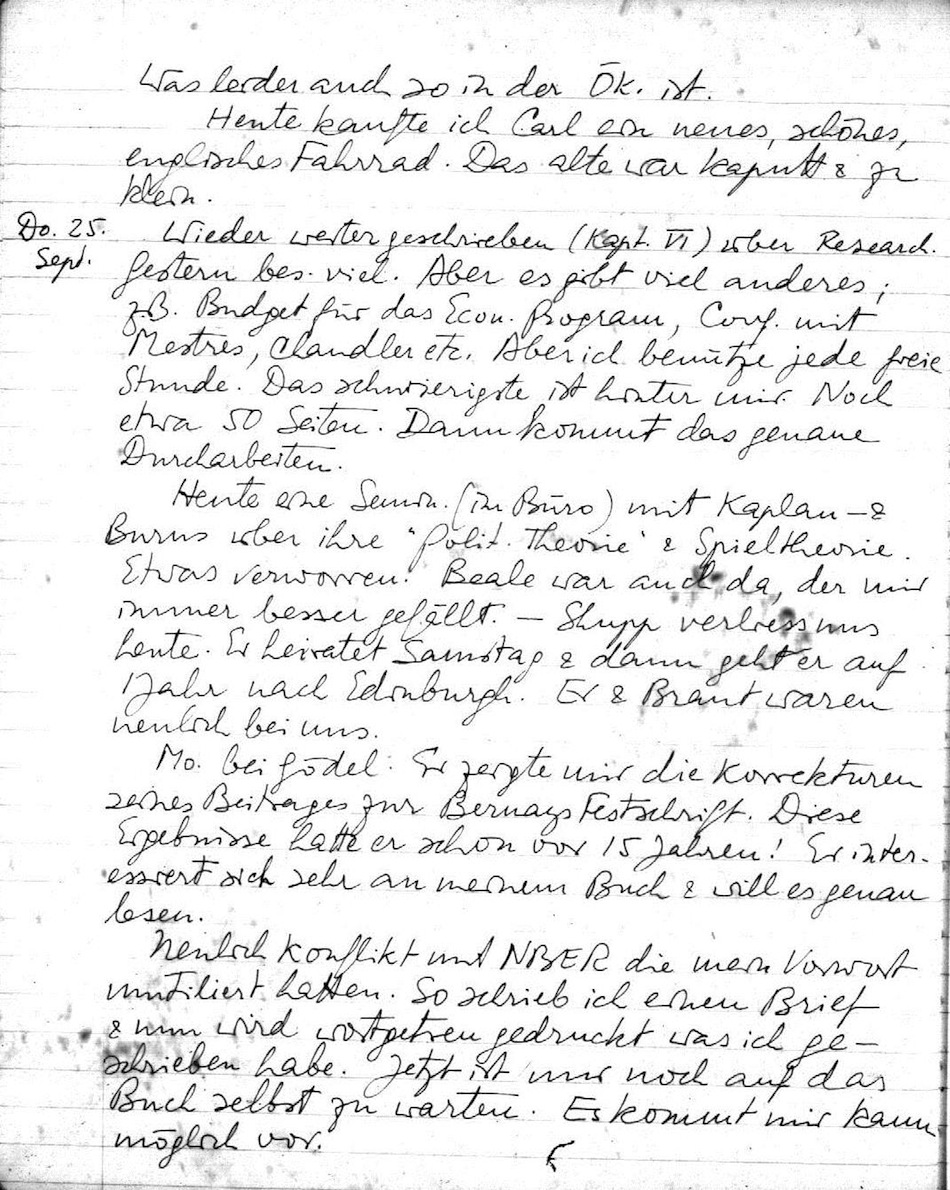 Was leider auch so in der Ök. ist.
Heute kaufte ich Carl ein neues, schönes,
englisches Fahrrad. Das alte war kaputt & zu
klein.
Do. 25. Wieder weitergeschrieben (Kapt. VI) über Research.
Sept. Gestern bes. viel. Aber es gibt viel anderes;
z.B. Budget für das Econ. Program, Conf. mit
Mestres, Chandler etc. Aber ich benütze jede freie
Stunde. Das schwierigste ist hinter mir. Noch
etwa 50 Seiten. Dann kommt das genaue
Durcharbeiten.
Heute eine Semin. (im Büro) mit Kaplan – &
Burns über ihre "polit. Theorie" & Spieltheorie.
Etwas verworren! Beale war auch da, der mir
immer besser gefällt. – Shupp verliess uns
heute. Er heiratet Samstag & dann geht er auf
1 Jahr nach Edinburgh. Er & Braut waren
neulich bei uns.
Mo. bei Gödel: Er zeigte mir die Korrekturen
seines Beitrages zur Bernays Festschrift. Diese
Ergebnisse hatte er schon vor 15 Jahren! Er inter-
essiert sich sehr an meinem Buch & will es genau
lesen.
Neulich Konflikt mit NBER die mein Vorwort
mutiliert hatten. So schrieb ich einen Brief
& nun wird wortgetreu gedruckt was ich ge-
schrieben habe. Jetzt ist nur noch auf das
Buch selbst zu warten. Es kommt mir kaum
möglich vor.